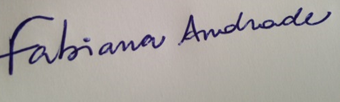 Fabiana Andrade